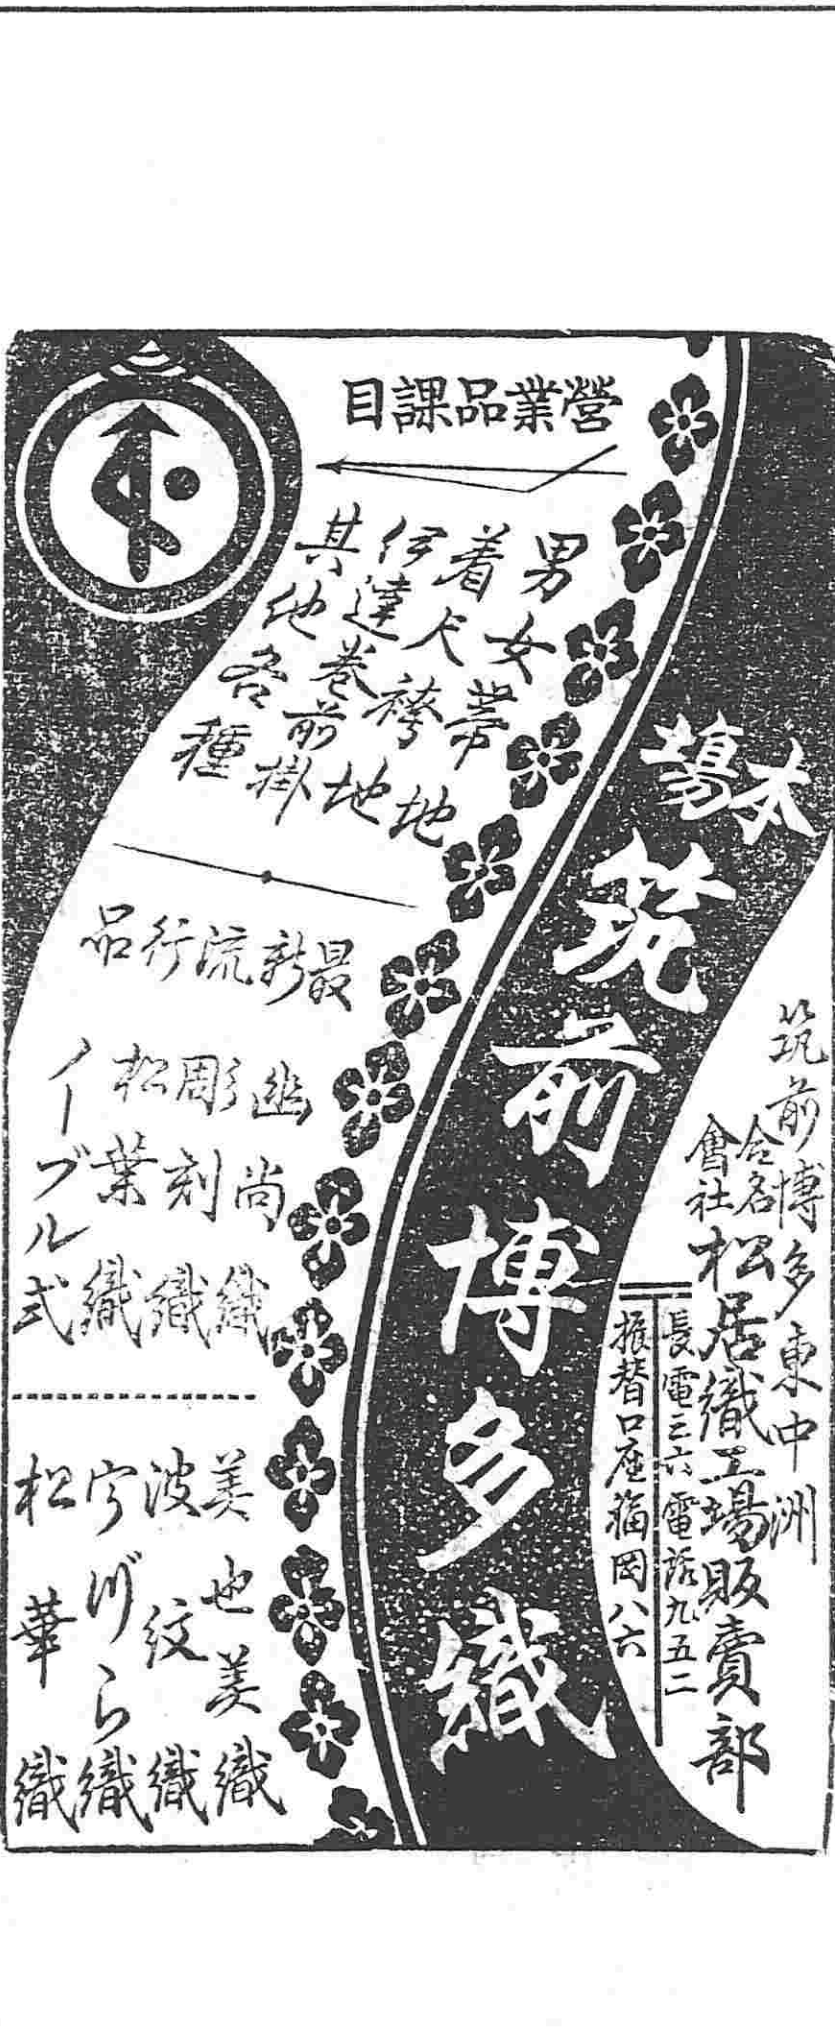 本場
筑前博多織
筑前博多東中洲
合名會社
松居織工場販賣部
長電三六電話九五二
振替口座福岡八六
營業品課目
男女帶地
着尺袴地
伊達巻前掛
其他各種
最新流行品
幽尚織
彫刻織
松葉織
イーブル式
美也美織
波紋織
宇づら織
松華織